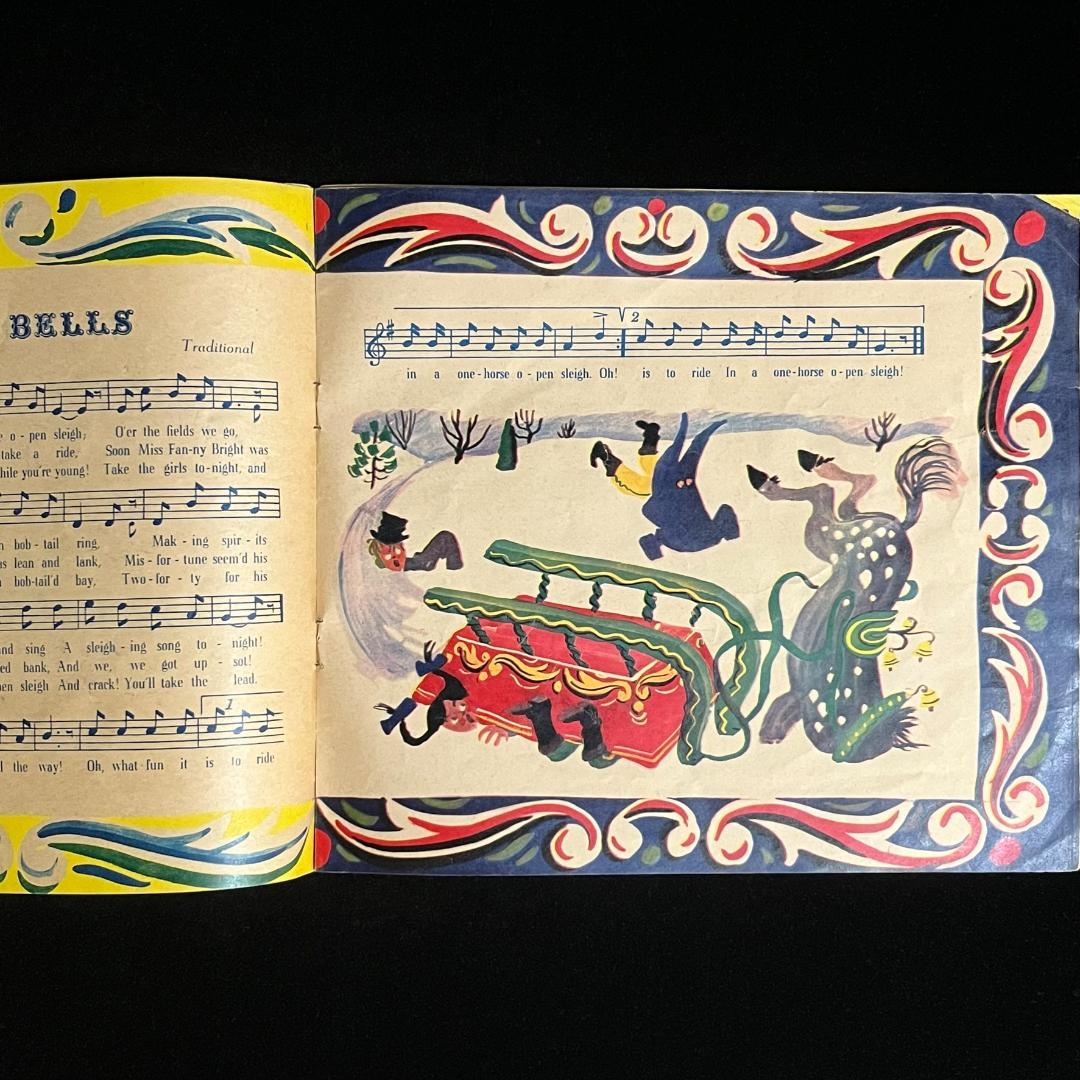 BELLS
Traditional
o - pen sleigh; O'er the fields we go,
take a ride, Soon Miss Fan-ny Bright was
you're young! Take the girls to-night, and
bob - tail ring, Mak - ing spir - its
lean and lank, Mis - for - tune seem'd his
bob-tail'd bay, Two - for - ty for his
sing A sleigh - ing song to - night!
bank, And we, we got up - sot!
sleigh And crack! You'll take the lead.
1
the way! Oh, what fun it is to ride
2
in a one-horse o - pen sleigh. Oh! is to ride In a one-horse o-pen sleigh!